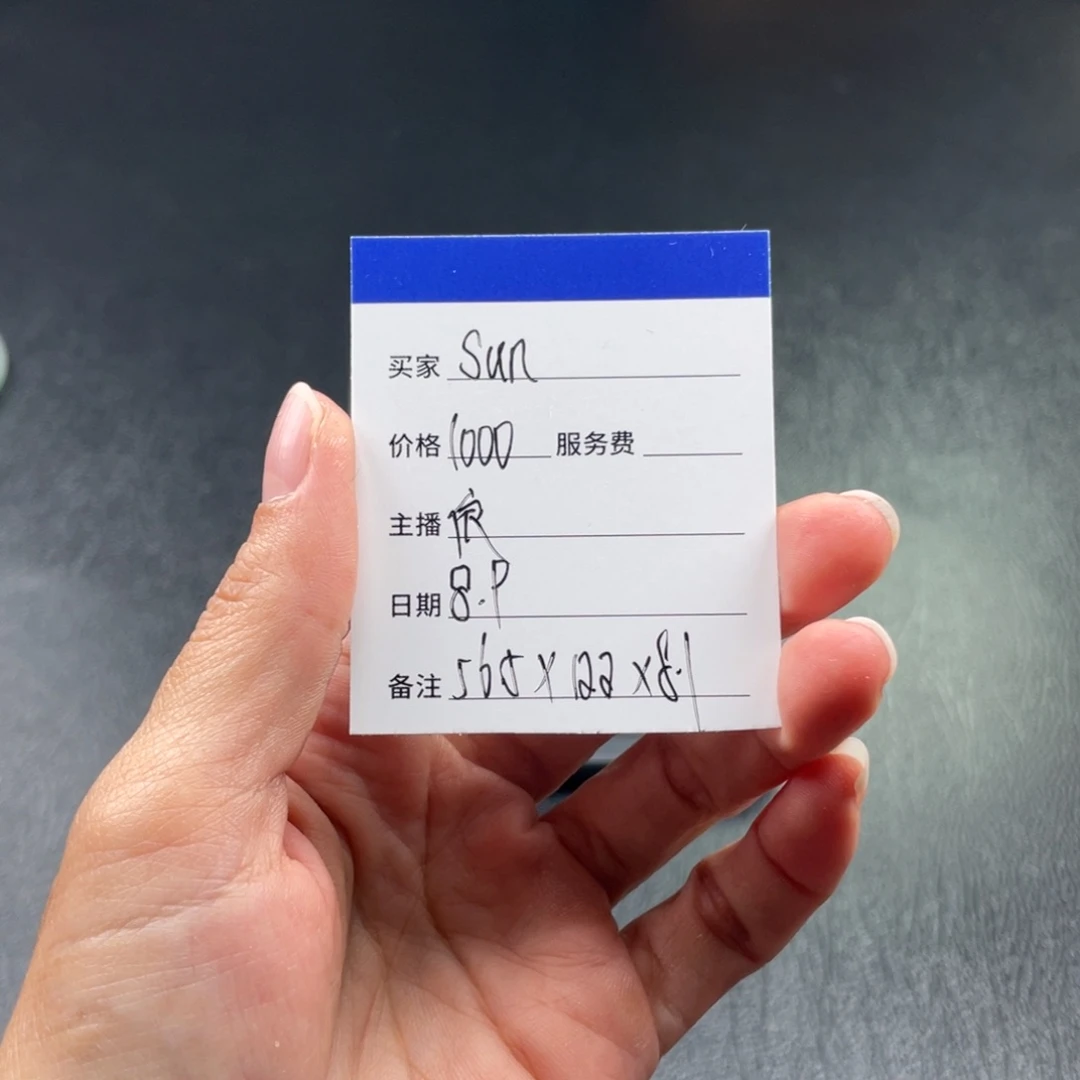 买家 Sun
价格 1000 服务费
主播
日期 8.9
备注 565 X 122 X 8.1